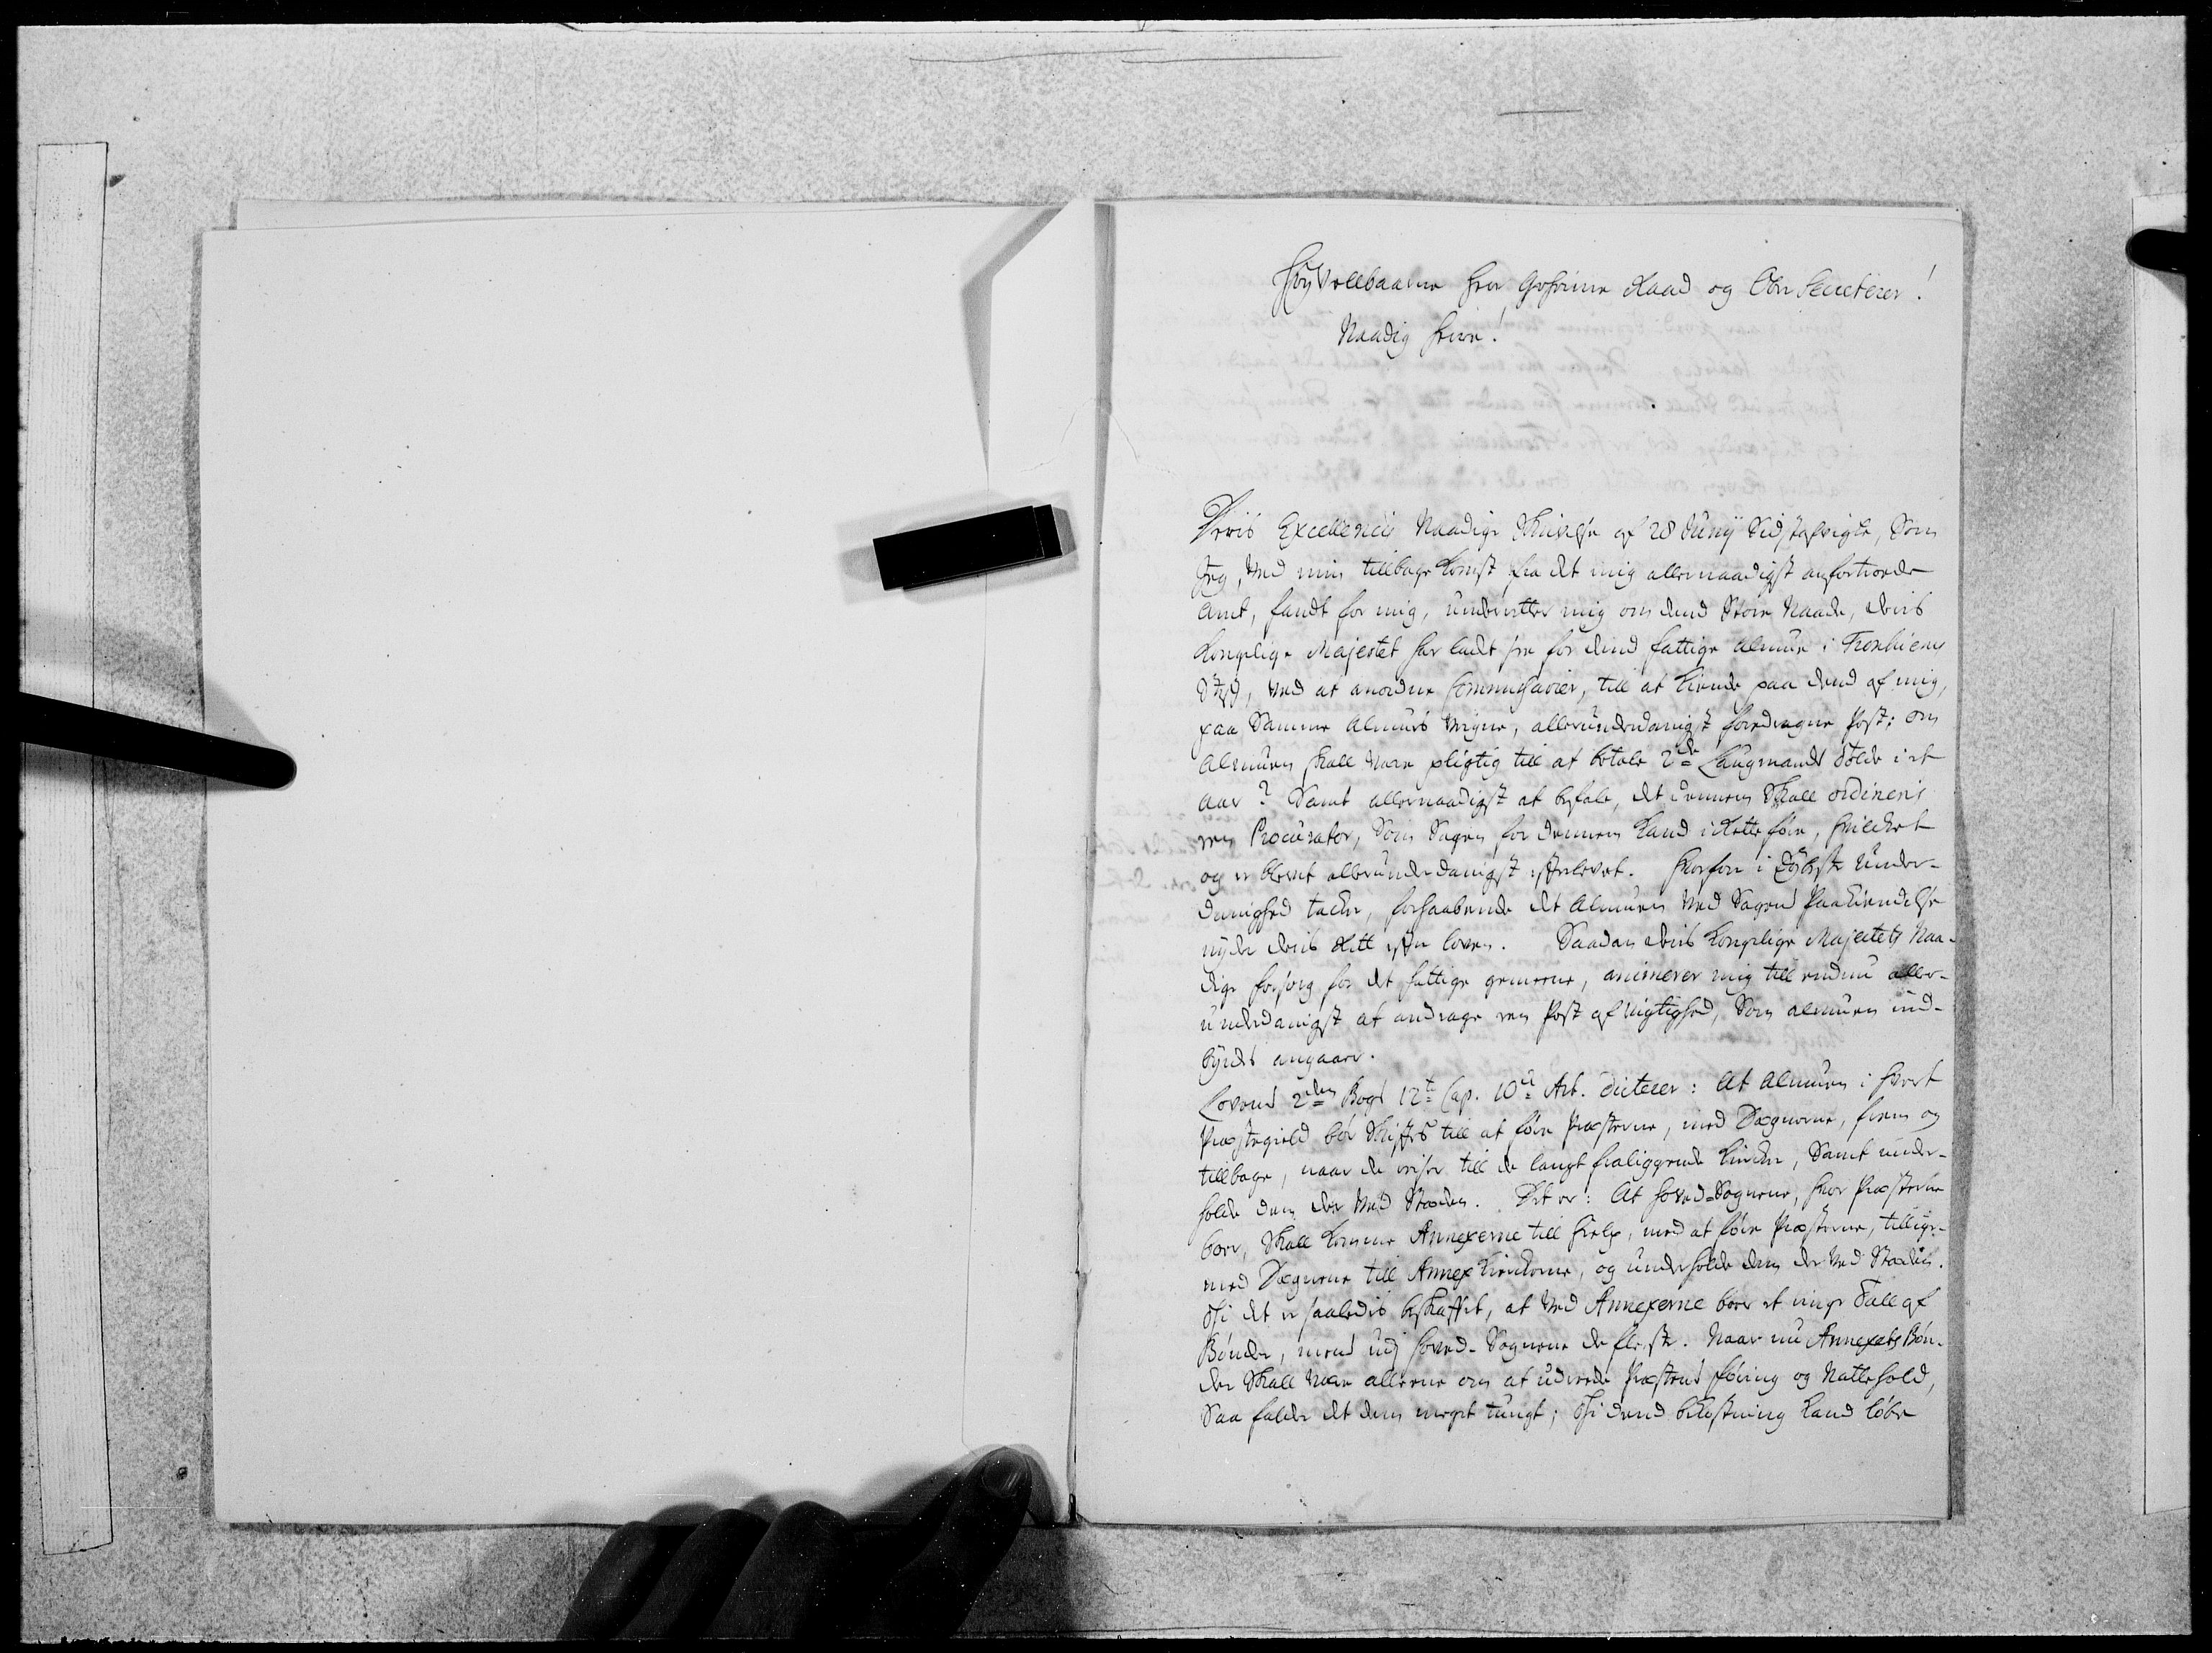 HøyVellbaarne Herr Geheime Raad og Ober Secreterer!
Naadig Herre!
Deris Excellences Naadige Skrivelse af 28 Junij Sidstafvigte, Som
Jeg, Ved min tillbage komst fra det mig allernaadigst anfortroede
Amt, fandt for mig, underretter mig om dend Store Naade, deris
Kongelige Majestet har ladt see for dend fattige Almue i Tronhiems
Stift, Ved at anordne Commissarier, till at kiende paa dend af mig,
paa Samme Almues Vegne, allerunderdanigst foredragne Post: om
Almuen skall være pligtig till at betale 2de Laugmands Tolde i et
aar? Samt allernaadigst at befale, det dennem Skall ordineris
een Procurator, Som Sagen for dennem kand i Rette føre, hvilcket
og er blevet allerunderdanigst efterlevet. Hvorfore i dybeste Under-
danighed tacker, forhaabende det Almuen Ved Sagens Paakiendelse
nyder deris Rett efter loven. Saadan deris Kongelige Majestets Naa-
dige forsorg for det fattige gemeene, animerer mig till endnu aller-
underdanigst at andrage een Post af Vigtighed, Som almuen ind-
byrdes angaaer.
Lovens 2den Bogs 12te Cap. 10de Art. dicterer: At Almuen i hvert
Præstegield bør Skifftes till at føre Præsterne, med Degnerne, frem og
tillbage, naar de reiser till de langt fraliggende Kircker, Samt under-
holde dem der Ved Stæden. Det er: At Hoved-Sognene, hvor Præsterne
boer, Skall komme Annexerne till hielp, med at føre Præsterne, tillige-
med Degnene till Annex Kirckerne, og underholde dem der Ved Stæden.
Thi det er saaledis beskaffet, at Ved Annexerne boer et ringe Tall af
Bønder, mens udj Hoved-Sognene de fleeste. Naar nu Annexets Bøn-
der Skall være alleene om at udreede Præstens føring og Natthold,
Saa falder det dem meget tungt; thi dend bekostning kand løbe